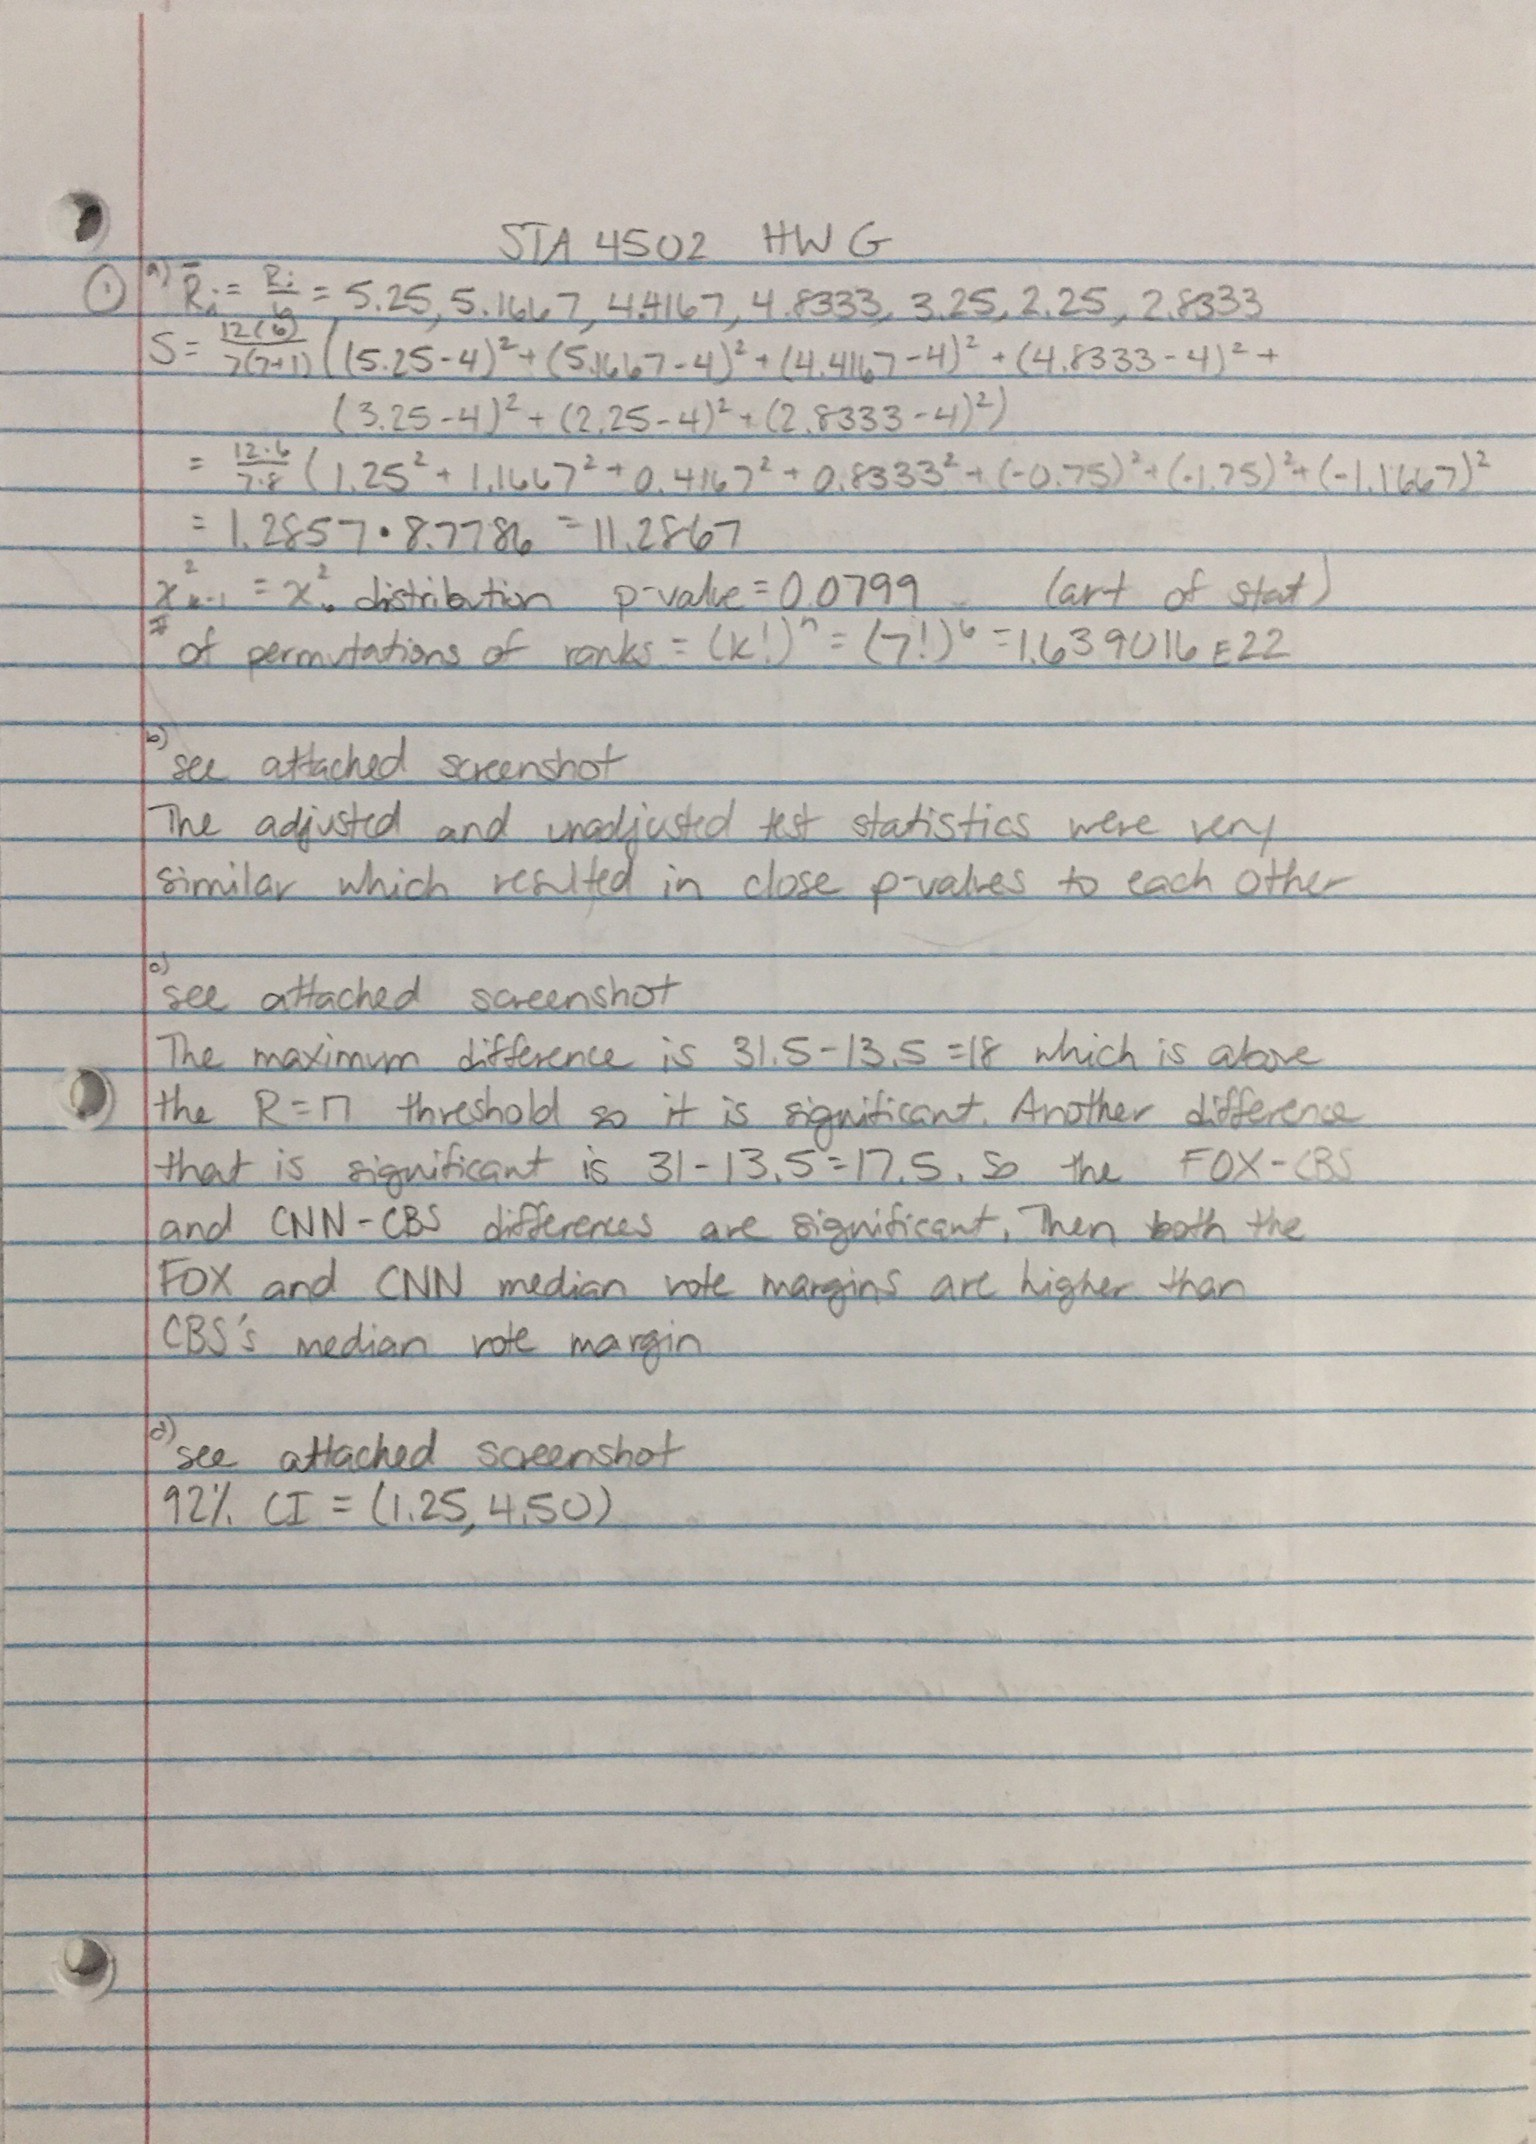 STA 4502 HW G
① a) R̄ⱼ = Rⱼ/6 = 5.25, 5.1667, 4.4167, 4.8333, 3.25, 2.25, 2.8333
S = 12(6)/7(7+1) ((5.25-4)² + (5.1667-4)² + (4.4167-4)² + (4.8333-4)² +
(3.25-4)² + (2.25-4)² + (2.8333-4)²)
= 12·6/7·8 (1.25² + 1.1667² + 0.4167² + 0.8333² + (-0.75)² + (-1.75)² + (-1.1667)²
= 1.2857 · 8.7786 = 11.2867
x²ₖ₋₁ = x²₆ distribution p-value = 0.0799 (art of stat)
# of permutations of ranks = (k!)ⁿ = (7!)⁶ = 1.639016 E22
b) see attached screenshot
The adjusted and unadjusted test statistics were very
similar which resulted in close p-values to each other
c) see attached screenshot
The maximum difference is 31.5-13.5=18 which is above
the R=17 threshold so it is significant. Another difference
that is significant is 31-13.5=17.5. So the FOX-CBS
and CNN-CBS differences are significant. Then both the
FOX and CNN median vote margins are higher than
CBS's median vote margin
d) see attached screenshot
92% CI = (1.25, 4.50)